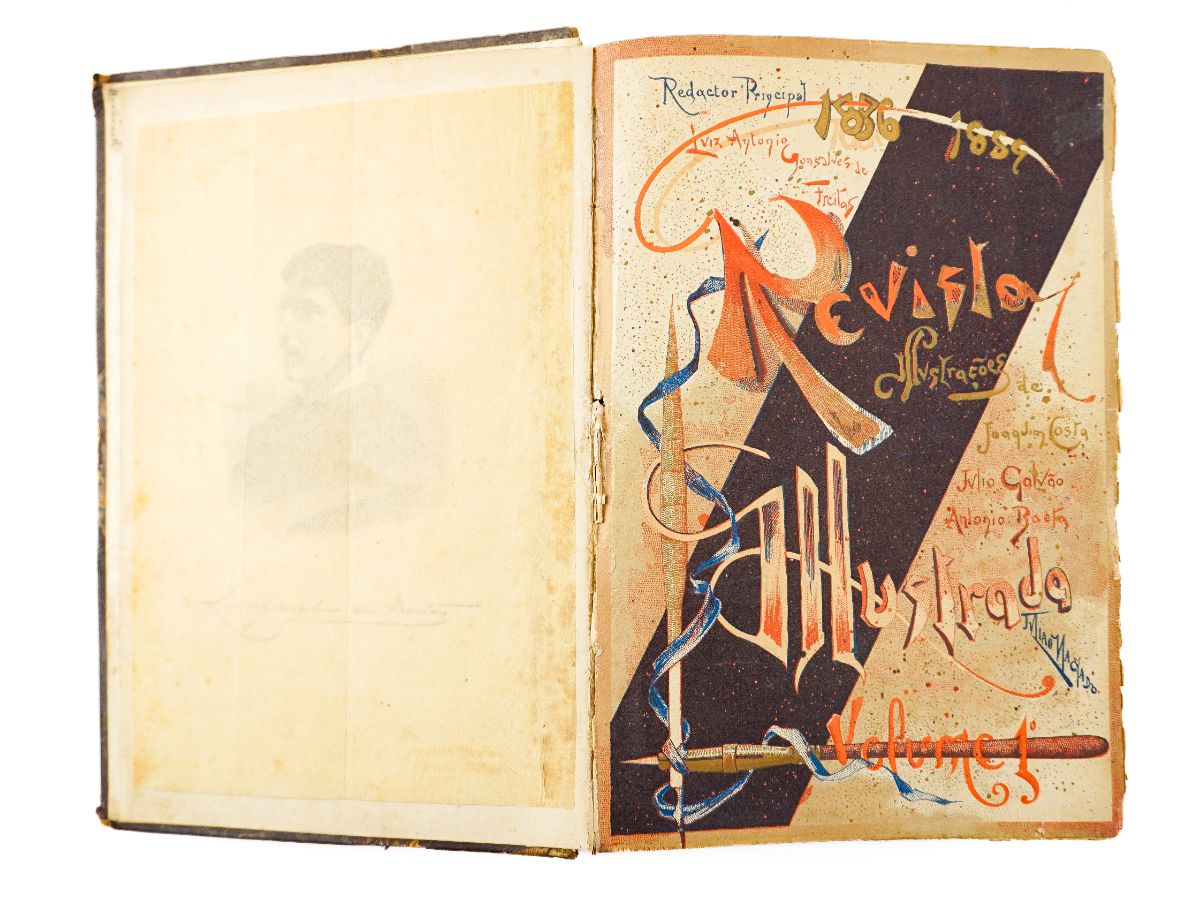 Redactor Principal
1886 1889
Luiz Antonio
Gonsalves de
Freitas
Revista
Illustrações
de
Joaquim Costa
Julio Galvão
Antonio Baeta
Illustrada
Julião Machado
Volume 1º